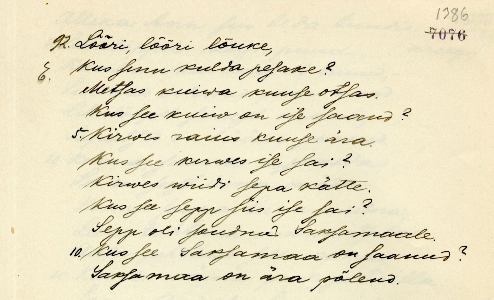 1386
7076
92. Lõõri, lõõri lõuke,
E. Kus sinu kulda pesake?
Metsas kuiwa kuuse otsas.
Kus see kuiw on ise saanud?
5. Kirwes raius kuuse ära.
Kus see kirwes ise sai?
Kirwes wiidi sepa kätte.
Kus see sepp siis ise sai?
Sepp oli jõudnud Saksamaale.
10. Kus see Saksamaa on saanud?
Saksamaa on ära põlend.